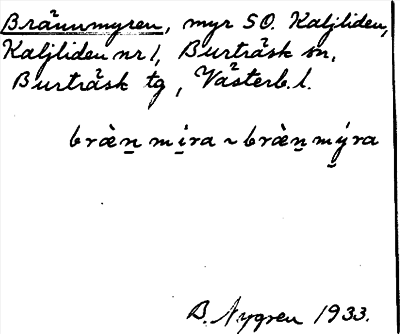 Brännmyren, myr SO. Kaljliden,
Kaljliden nr 1, Burträsk sn,
Burträsk tg, Västerb. l.
bràe̠n mi̠ra ~ bràe̠n mýra
B. Nygren 1933.